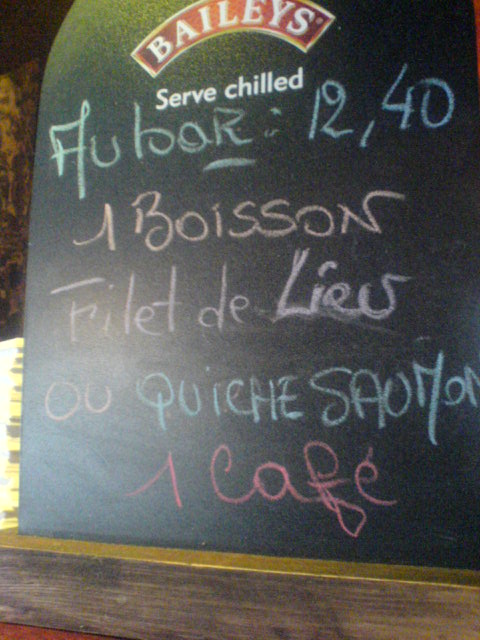 BAILEYS
Serve chilled
Au baR : 12,40
1 BOISSON
Filet de Lieu
OU QUICHE SAUMON
1 Café